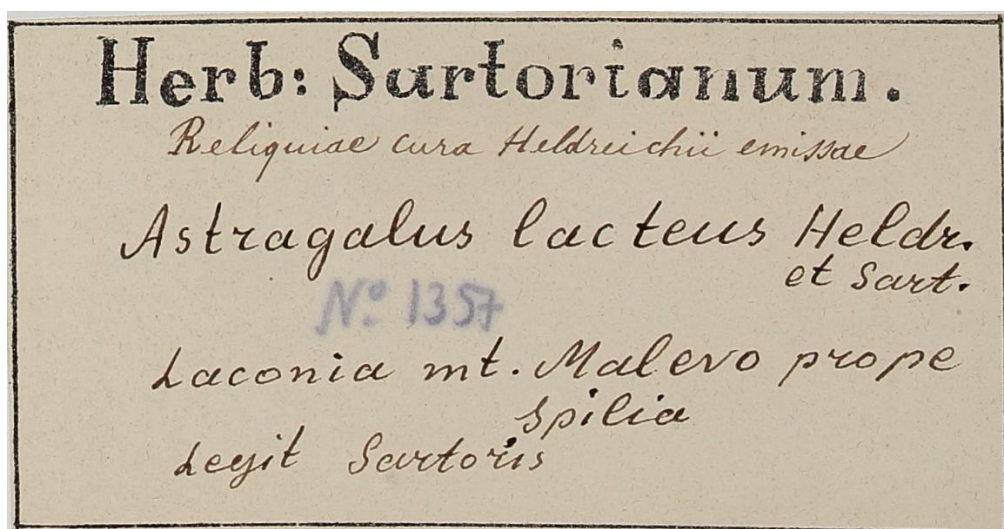 Herb: Sartorianum.
Reliquiae cura Heldreichii emissae
Astragalus lacteus Heldr.
et Sart.
No 1357
Laconia mt. Malevo prope
Spilia
Legit Sartoris